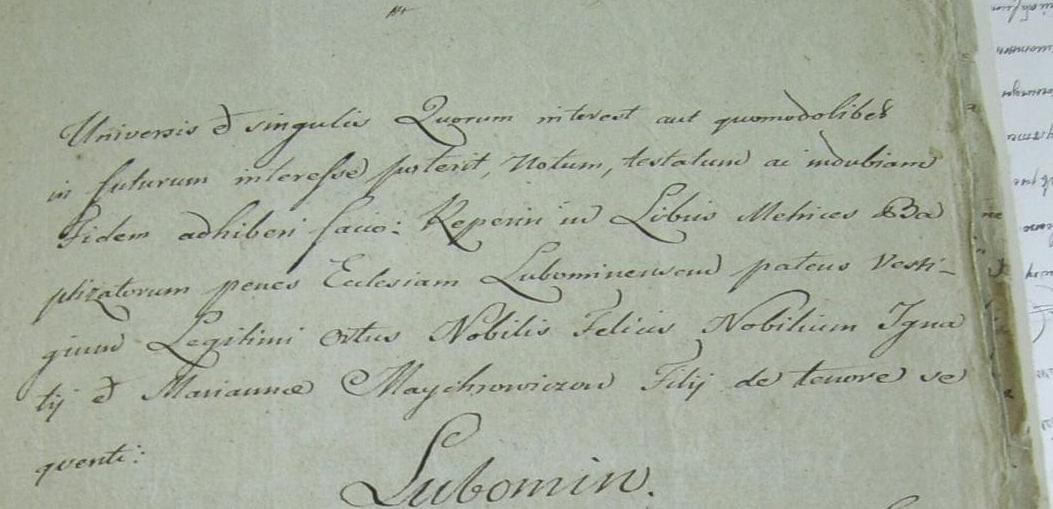 Universis et singulis Quorum interest aut quomodolibet
in futurum interesse poterit, Notum, testatum ac indubiam
Fidem adhiberi facio: Reperiri in Libris Metrices Ba
ptizatorum penes Ecclesiam Lubominensem patens Vesti-
gium Legitimi Ortus Nobilis Felicis Nobilium Igna
tij et Mariannæ Maychrowiczow Filij de tenore se
quenti:
Lubomin.